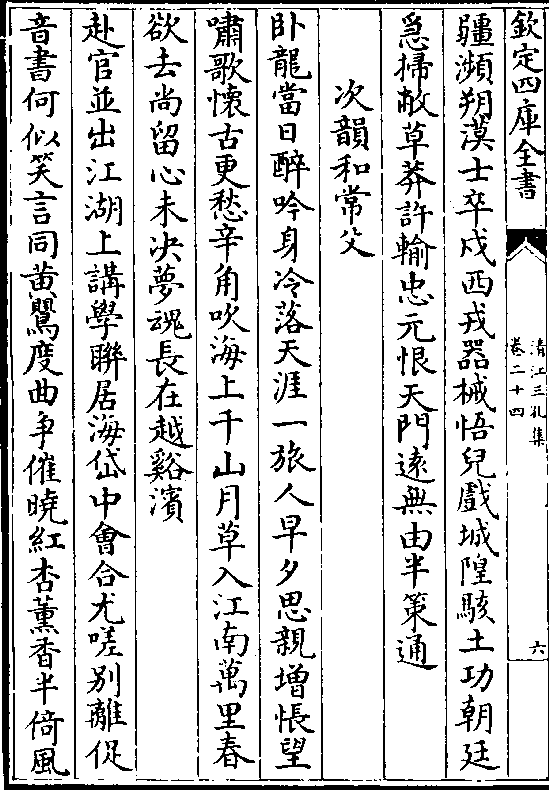 欽定四庫全書
清江三孔集
卷二十四
六
疆瀕朔漠士卒戍西戎器械悟兒戲城隍駭土功朝廷
急掃敝草莽許輸忠元恨天門遠無由半策通
次韻和常父
卧龍當日醉吟身冷落天涯一旅人早夕思親增悵望
嘯歌懷古更愁辛角吹海上千山月草入江南萬里春
欲去尚留心未決夢魂長在越谿濱
赴官並出江湖上講學聯居海岱中會合尤嗟别離促
音書何似笑言同黄鸎度曲争催曉紅杏薰香半倚風